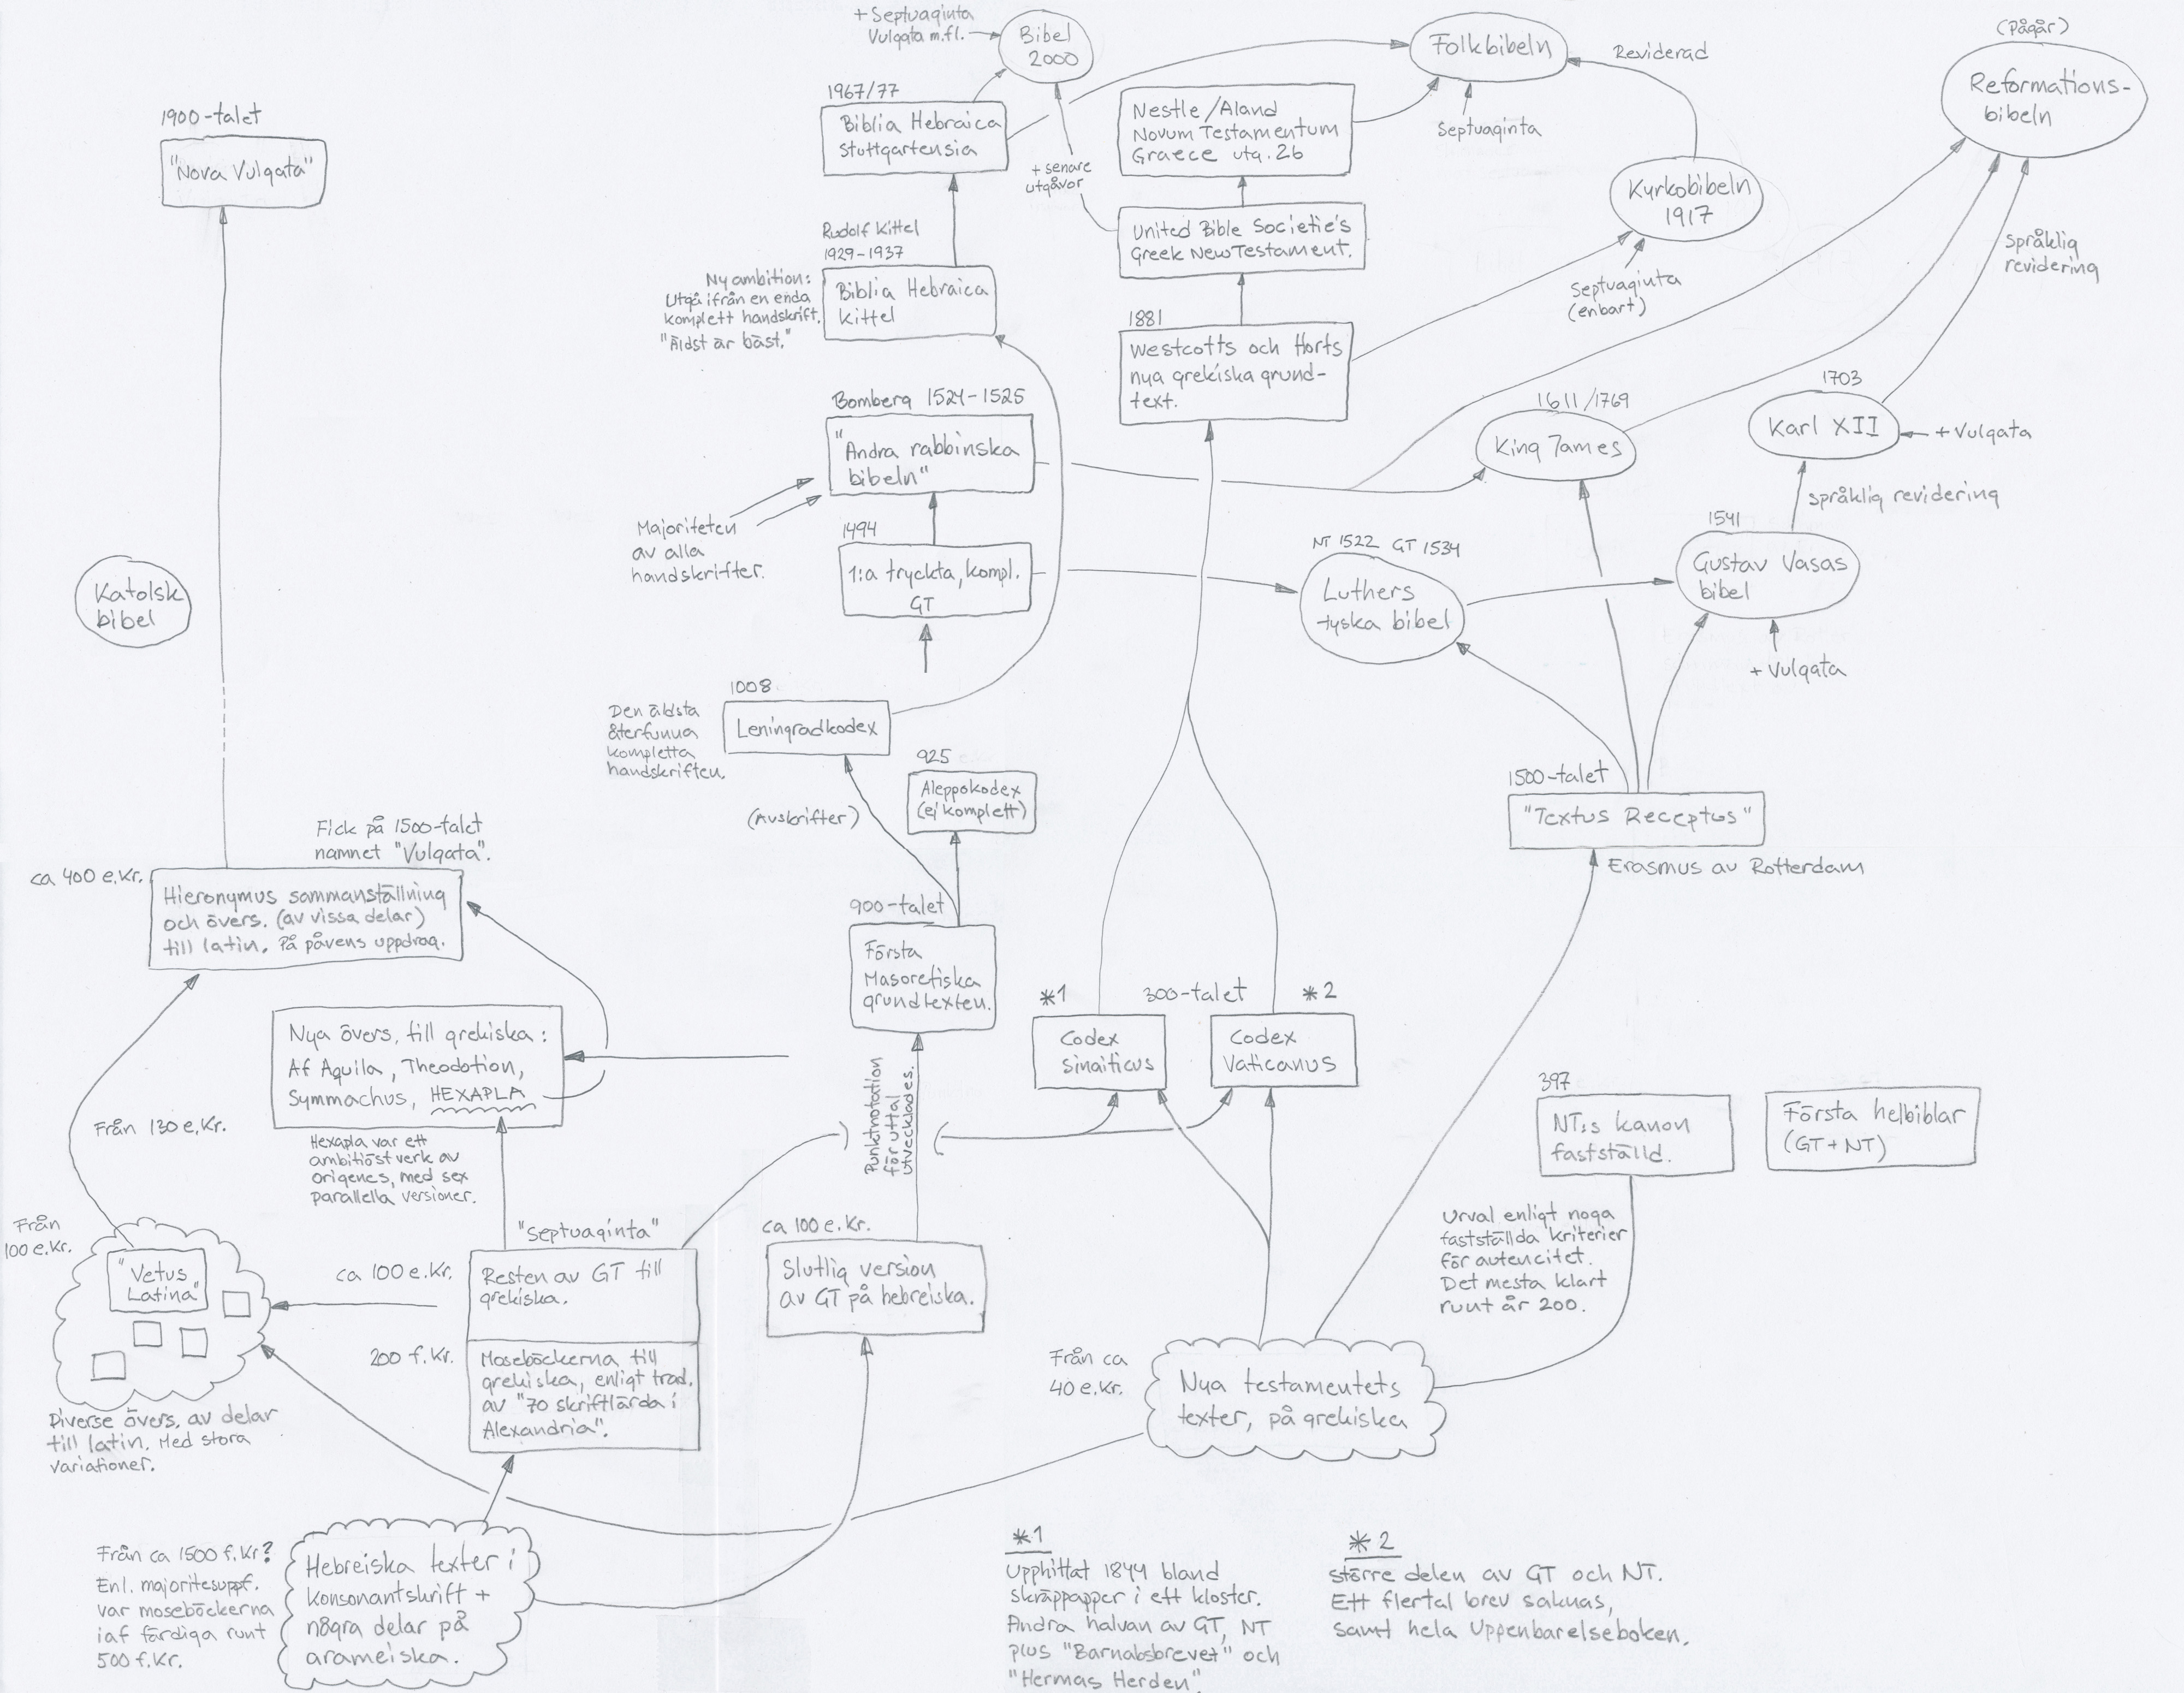 + Septuaginta
Vulgata m.fl.
Bibel
2000
Folkbibeln
Reviderad
(Pågår)
Reformations-
bibeln
1900-talet
"Nova Vulgata"
1967/77
Biblia Hebraica
Stuttgartensia
Nestle/Aland
Novum Testamentum
Graece utg. 26
Septuaginta
+ senare
utgåvor
Kyrkobibeln
1917
Rudolf Kittel
1929-1937
Ny ambition:
Utgå ifrån en enda
komplett handskrift.
"Äldst är bäst."
Biblia Hebraica
Kittel
United Bible Societie's
Greek New Testament.
Septuaginta
(enbart)
språklig
revidering
1881
Westcotts och Horts
nya grekiska grund-
text.
Bomberg 1524-1525
"Andra rabbinska
bibeln"
1611/1769
King James
1703
Karl XII
+ Vulgata
språklig revidering
Majoriteten
av alla
handskrifter.
1494
1:a tryckta, kompl.
GT
NT 1522 GT 1534
Luthers
tyska bibel
1541
Gustav Vasas
bibel
+ Vulgata
Katolsk
bibel
1008
Leningradkodex
Den äldsta
återfunna
kompletta
handskriften.
925
Aleppokodex
(ej komplett)
(Avskrifter)
1500-talet
"Textus Receptus"
Erasmus av Rotterdam
Fick på 1500-talet
namnet "Vulgata".
ca 400 e.Kr.
Hieronymus sammanställning
och övers. (av vissa delar)
till latin. På påvens uppdrag.
900-talet
Första
Masoretiska
grundtexten.
*1
300-talet
*2
Codex
Sinaiticus
Codex
Vaticanus
Nya övers. till grekiska:
Af Aquila, Theodotion,
Symmachus, HEXAPLA
Från 130 e.Kr.
Hexapla var ett
ambitiöst verk av
origenes, med sex
parallella versioner.
Punktnotation
för uttal
utvecklades.
397
NT:s kanon
fastställd.
Första helbiblar
(GT+NT)
Urval enligt noga
fastställda kriterier
för autencitet.
Det mesta klart
runt år 200.
Från
100 e.Kr.
"Vetus
Latina"
Diverse övers. av delar
till latin. Med stora
variationer.
"Septuaginta"
ca 100 e.Kr.
Resten av GT till
grekiska.
200 f.Kr.
Moseböckerna till
grekiska, enligt trad.
av "70 skriftlärda i
Alexandria".
ca 100 e.Kr.
Slutlig version
av GT på hebreiska.
Från ca
40 e.Kr.
Nya testamentets
texter, på grekiska
Från ca 1500 f.Kr?
Enl. majoritesuppf.
var moseböckerna
iaf färdiga runt
500 f.Kr.
Hebreiska texter i
konsonantskrift +
några delar på
arameiska.
*1
Upphittat 1844 bland
skräppapper i ett kloster.
Andra halvan av GT, NT
plus "Barnabsbrevet" och
"Hermas Herden".
*2
större delen av GT och NT.
Ett flertal brev saknas,
samt hela Uppenbarelseboken.